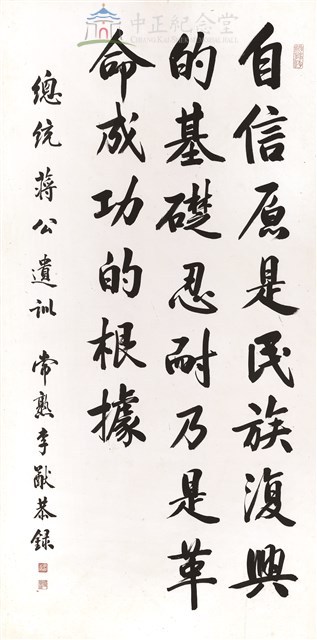 自信原是民族復興
的基礎忍耐乃是革
命成功的根據
總統蔣公遺訓 常熟李猷恭錄
中正紀念堂